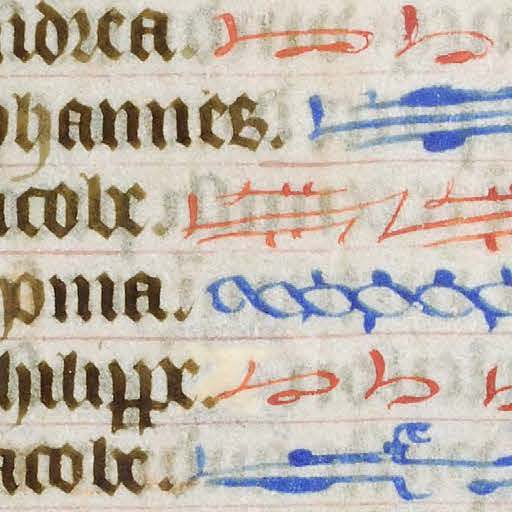 ndrea.
ohannes.
acobe.
oma.
hilippe.
acobe.